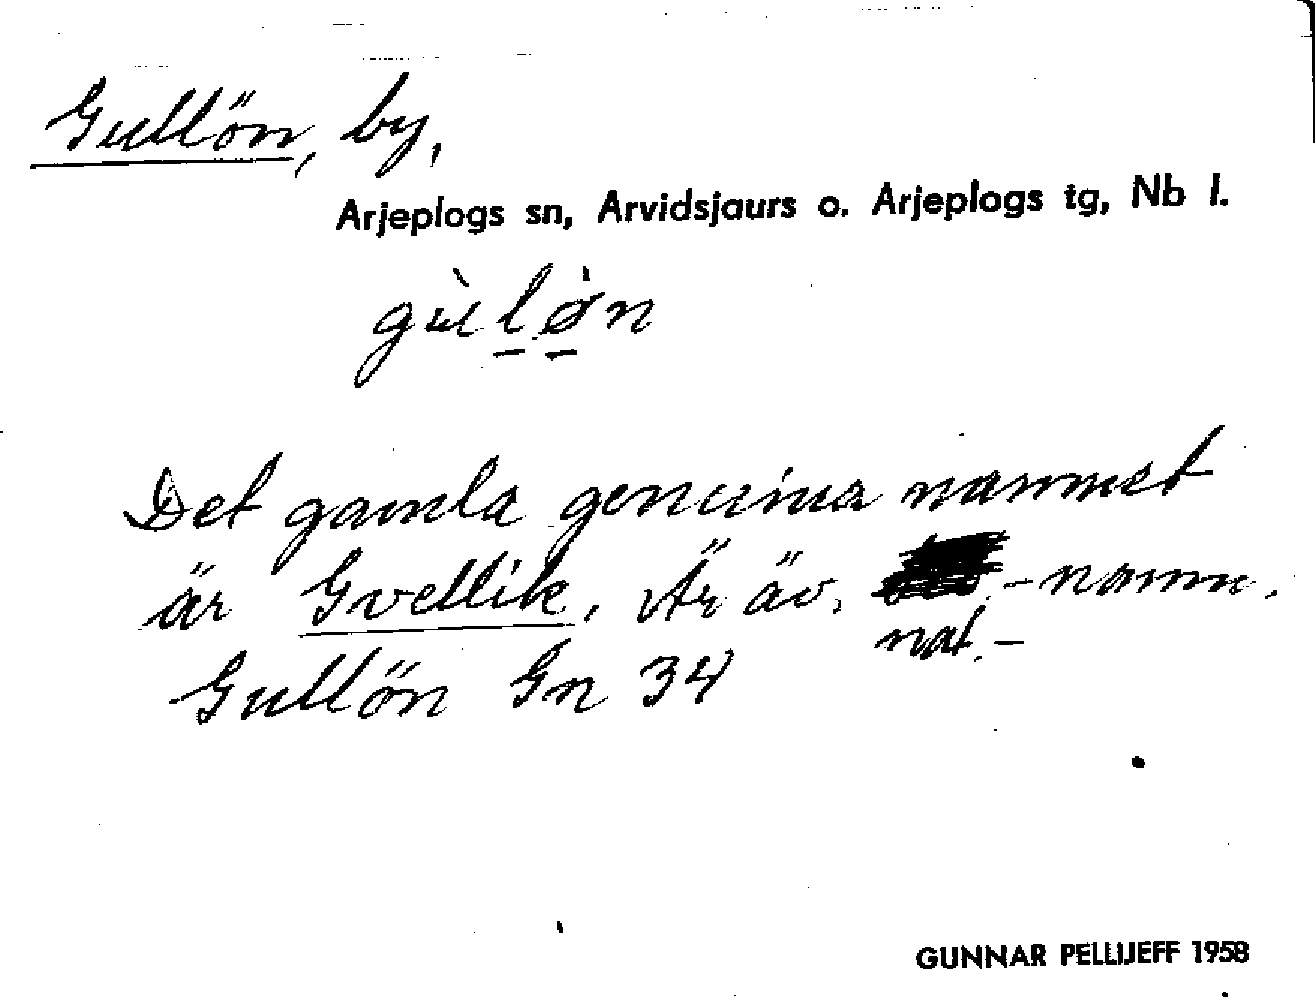 Gullön, by,
Arjeplogs sn, Arvidsjaurs o. Arjeplogs tg, Nb l.
gùl̠ø̠̍n
Det gamla genuina namnet
är Gvellik. Är äv. nat.-namn.
Gullön Gn 34
GUNNAR PELLIJEFF 1958